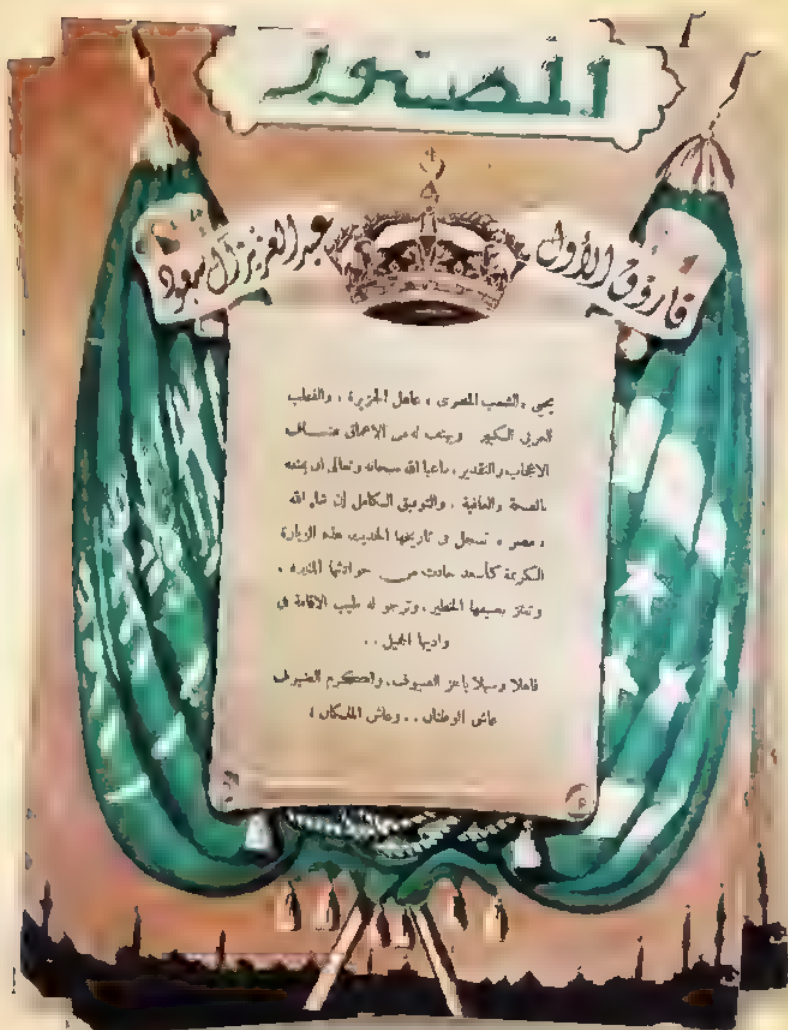 المصور
فاروق الأول
عبد العزيز آل سعود
يحيي الشعب المصرى ، عاهل الجزيرة ، والقطب
العربى الكبير ويهتف له من الاعماق هتاف
الاعجاب والتقدير ، داعيا الله سبحانه وتعالى أن يمتعه
بالصحة والعافية ، والتوفيق الكامل إن شاء الله
، مصر ، تسجل فى تاريخها الحديث هذه الزيارة
الكريمة كأسعد حادث من حوادثها ،
وتعتز بضيفها الخطير ، وترجو له طيب الاقامة فى
واديها الجميل . .
فاهلا وسهلا ياعز الضيوف ، واكرم الضيوف
عاش الوطنان . . وعاش الملكان !